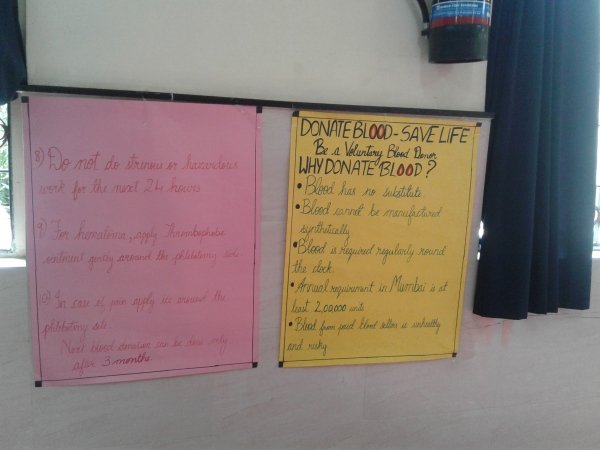 8) Do not do strenous or hazardous
work for the next 24 hours
9) For hematoma, apply Thrombophobe
ointment gently around the phlebotomy site.
10) In case of pain apply ice around the
phlebotomy site.
Next blood donation can be done only
after 3 months.
DONATE BLOOD - SAVE LIFE
Be a Voluntary Blood Donor
WHY DONATE BLOOD?
• Blood has no substitute.
• Blood cannot be manufactured
synthetically
• Blood is required regularly round
the clock.
• Annual requirement in Mumbai is at
least 2,00,000 units
• Blood from paid blood sellers is unhealthy
and risky